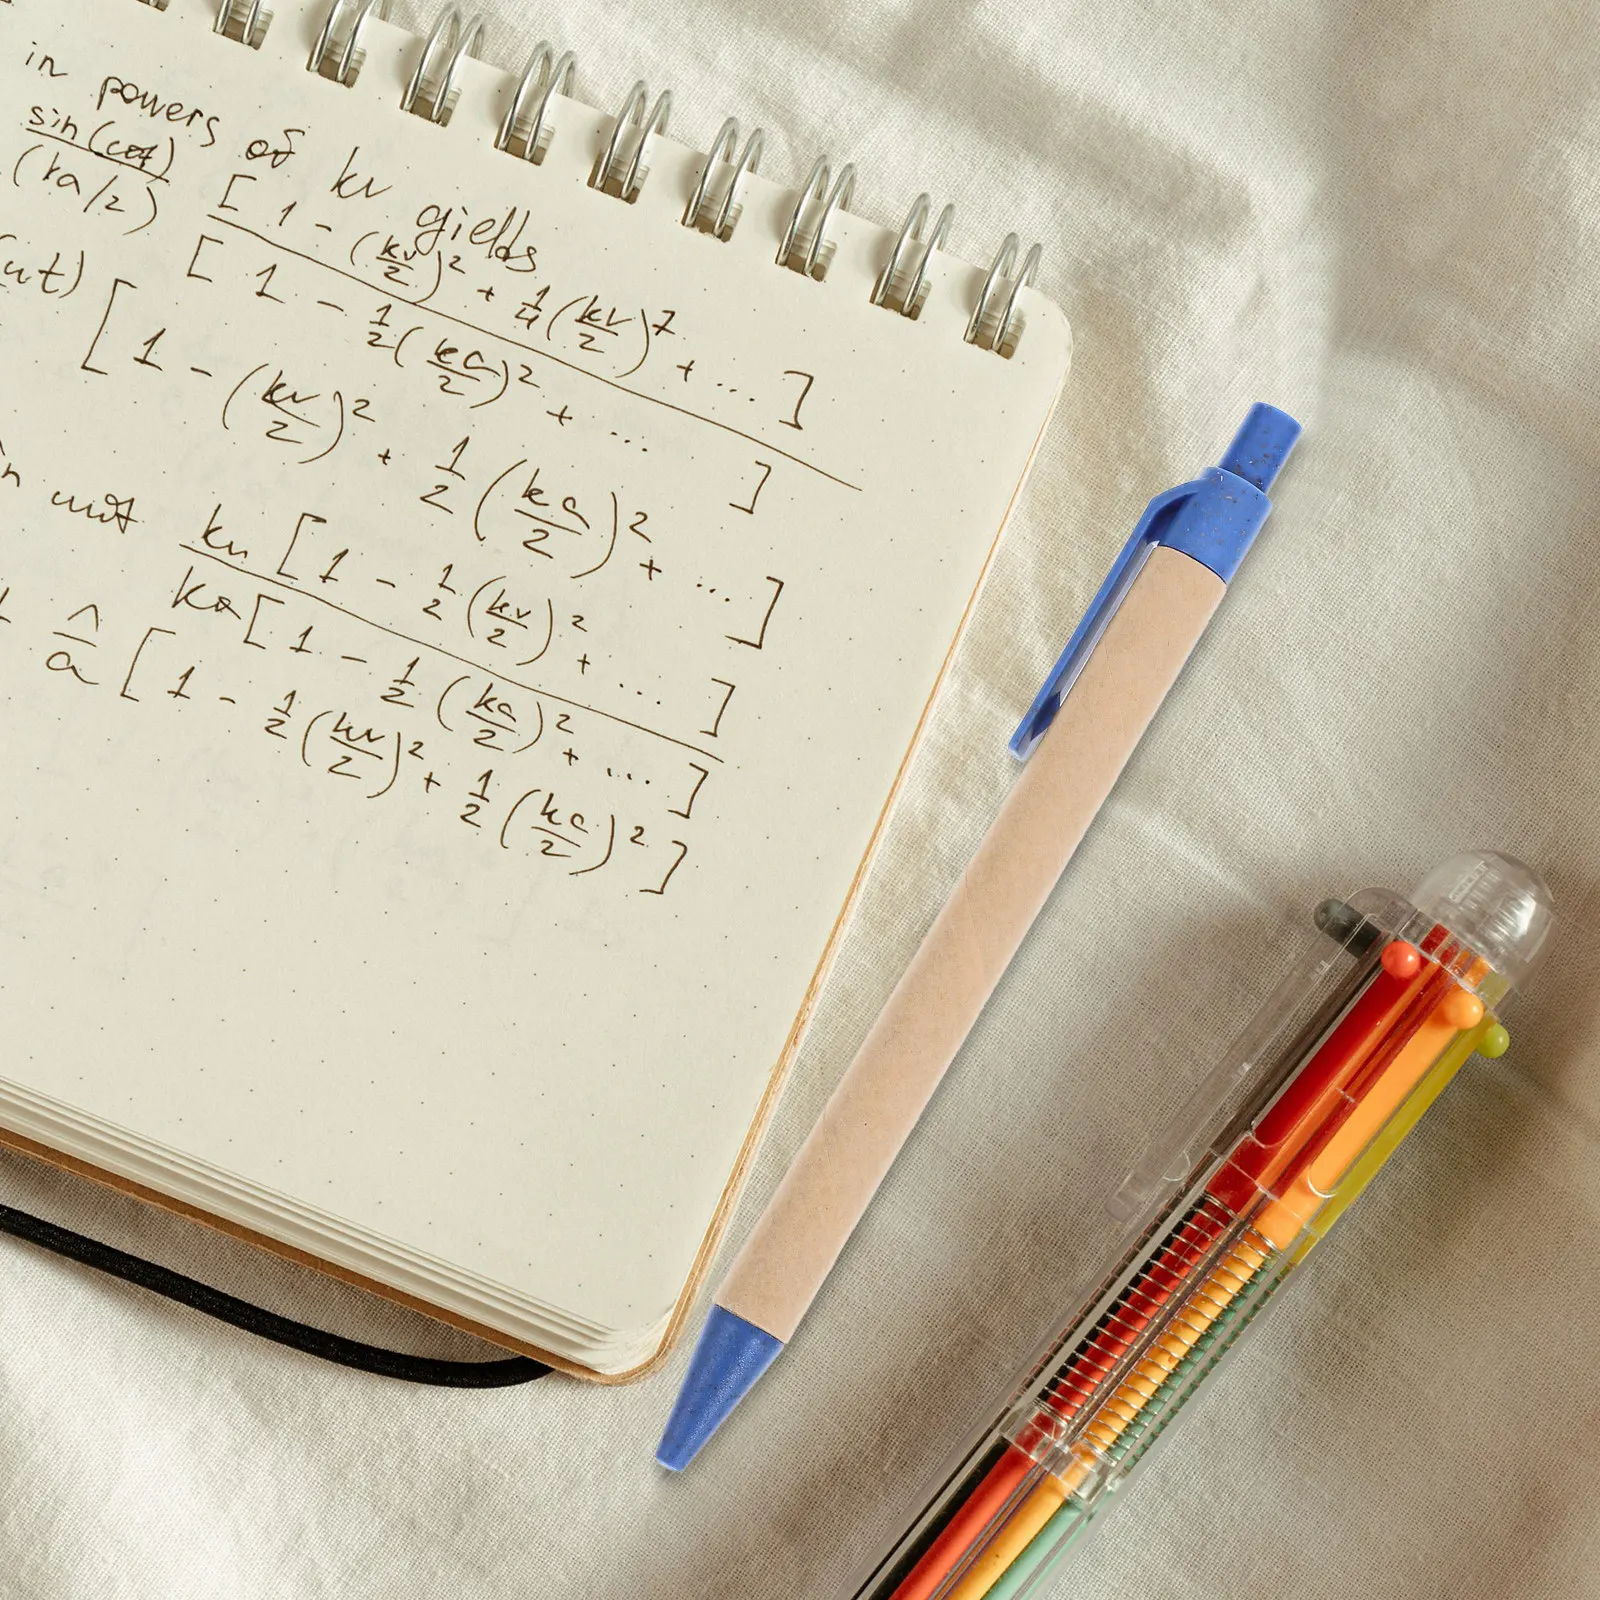 in powers of kv gields
sin(cot)/(ka/2) [1 - (kv/2)² + 1/4(kv/2)⁷ + ...]
/ [1 - 1/2(ka/2)² + ... ]
(ut) [1 - (kv/2)² + 1/2(ka/2)² + ...]
kv[1 - 1/2(kv/2)² + ... ]
/ ka[1 - 1/2(ka/2)² + ... ]
^/a [1 - 1/2(kv/2)² + 1/2(ka/2)²]